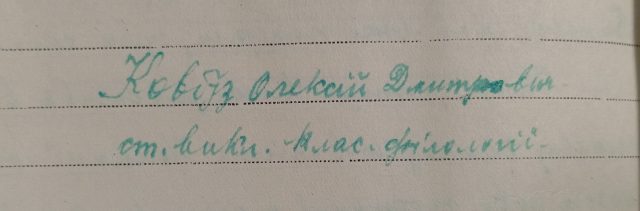 Ковбуз Олексій Дмитрович
ст. викл. клас. філології.